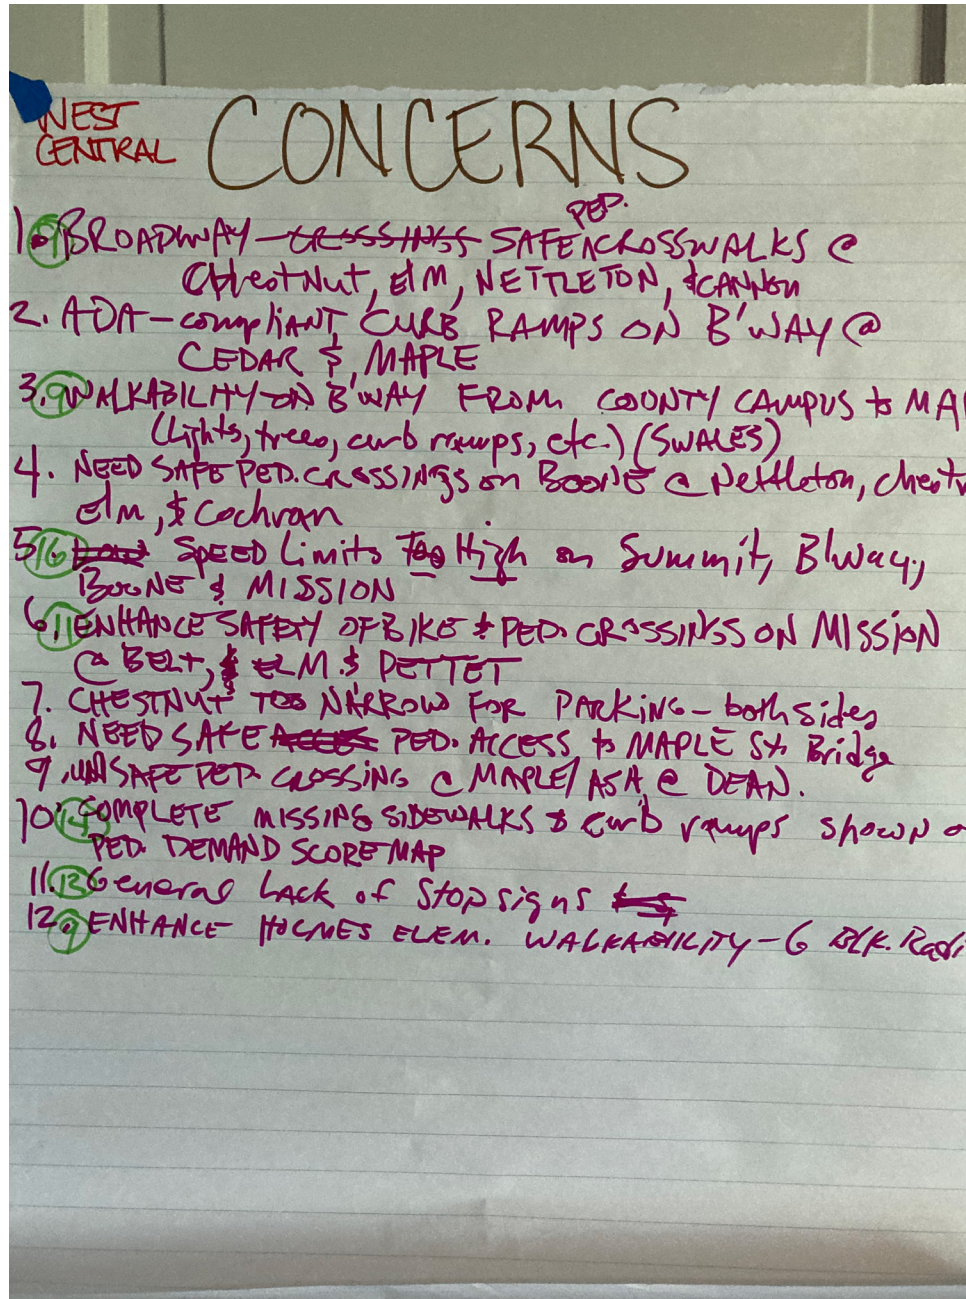 WEST
CENTRAL
CONCERNS
PED.
1. 9 BROADWAY - CROSSINGS SAFE ACROSSWALKS @
Chestnut, Elm, NETTLETON, & CANNON
2. ADA-compliant CURB RAMPS ON B'WAY @
CEDAR & MAPLE
3. 9 WALKABILITY ON B'WAY FROM COUNTY CAMPUS to MA
(Lights, trees, curb ramps, etc.) (SWALES)
4. NEED SAFE PED. CROSSINGS on BOONE @ Nettleton, chestn
Elm, & Cochran
5 16 SPEED Limits Too High on Summit, B'way,
BOONE & MISSION
6. 11 ENHANCE SAFETY OF BIKE & PED. CROSSINGS ON MISSION
@ BELT, & ELM & PETTET
7. CHESTNUT TOO NARROW FOR PARKING - both sides
8. NEED SAFE ACCESS PED. ACCESS to MAPLE St. Bridge
9. UNSAFE PED. CROSSING @ MAPLE/ASH @ DEAN.
10. 14 COMPLETE MISSING SIDEWALKS & curb ramps shown o
PED. DEMAND SCORE MAP
11. General Lack of Stop signs
12. 9 ENHANCE HOLMES ELEM. WALKABILITY - 6 BLK. Radi